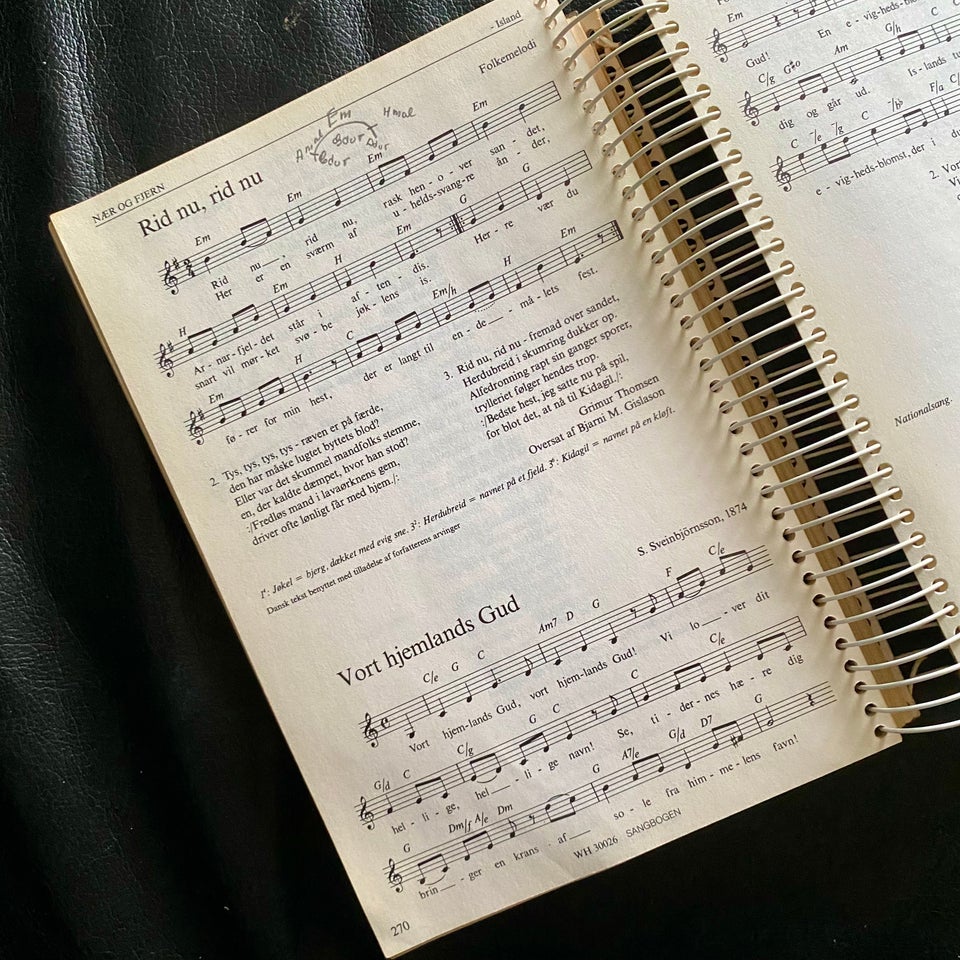 NÆR OG FJERN
- Island
Folkemelodi
Em
Hmol
Rid nu, rid nu
Em Em Em Em
Rid nu___, rid nu, rask hen - o - ver san - det,
Her er en sværm af u - helds-svang-re ån - der,
H Em H Em G G
Ar - nar-fjel-det står i af - ten - dis. Her - re vær du
snart vil mør-ket svø-be jøk-lens is.
Em H C Em/h H Em
fø - rer for min hest, der er langt til en - de___ - må - lets fest.
2. Tys, tys, tys, tys - ræven er på færde,
den har måske lugtet byttets blod?
Eller var det skummel mandfolks stemme,
en, der kaldte dæmpet, hvor han stod?
:/Fredløs mand i lavaørknens gem,
driver ofte lønligt får med hjem./:
3. Rid nu, rid nu - fremad over sandet,
Herdubreid i skumring dukker op.
Alfedronning rapt sin ganger sporer,
trylleriet følger hendes trop.
:/Bedste hest, jeg satte nu på spil,
for blot det, at nå til Kidagil./:
Grimur Thomsen
Oversat af Bjarni M. Gislason
1⁴: Jøkel = bjerg, dækket med evig sne. 3²: Herdubreid = navnet på et fjeld. 3⁶: Kidagil = navnet på en kløft.
Dansk tekst benyttet med tilladelse af forfatterens arvinger
S. Sveinbjörnsson, 1874
Vort hjemlands Gud
C/e G C Am7 D G F C/e
Vort hjem-lands Gud, vort hjem-lands Gud! Vi lo___ - ver dit
G/d C C/g G C C C/e
hel - li - ge, hel___ - li - ge navn! Se, ti - der-nes hæ - re dig
G Dm/f A/e Dm G A7/e G/d D7 G
brin___ - ger en krans af___ so - le fra him - me - lens favn!
WH 30026 SANGBOGEN
270
Em
Gud! En e - vig-heds-
C/g Am G/h C
dig og går ud. Is - lands
C /e /g C F/a
e - vig-heds-blomst, der i
Nationalsang.